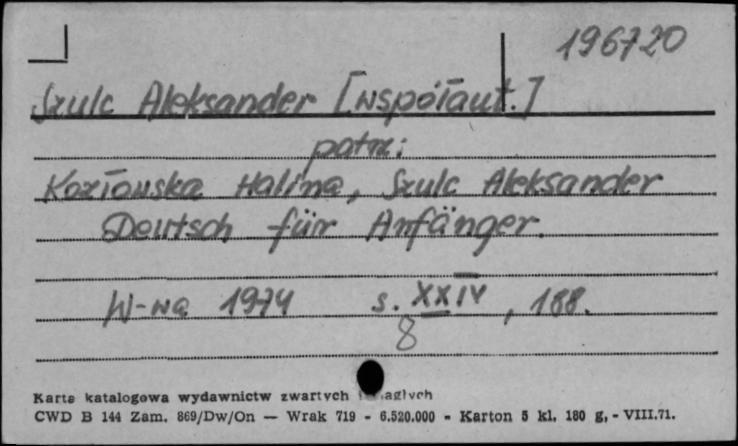 196720
Szulc Aleksander [współaut.]
patrz:
Kozłowska Halina, Szulc Aleksander
Deutsch für Anfänger.
W-wa 1974 s. XXIV, 188.
8
Karta katalogowa wydawnictw zwartych
CWD B 144 Zam. 869/Dw/On — Wrak 719 - 6.520.000 - Karton 5 kl. 180 g, - VIII.71.